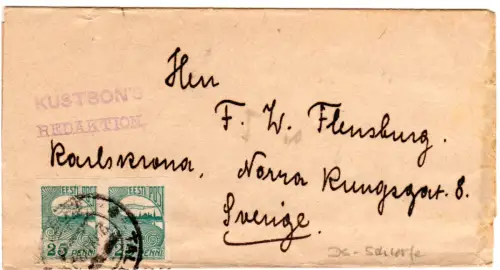 KUSTBON'S
REDAKTION.
Herr
F. W. Flensburg.
Karlskrona, Norra Kungsgat. 8.
Sverige.
EESTI POST EESTI POST
25 PENNI PENNI